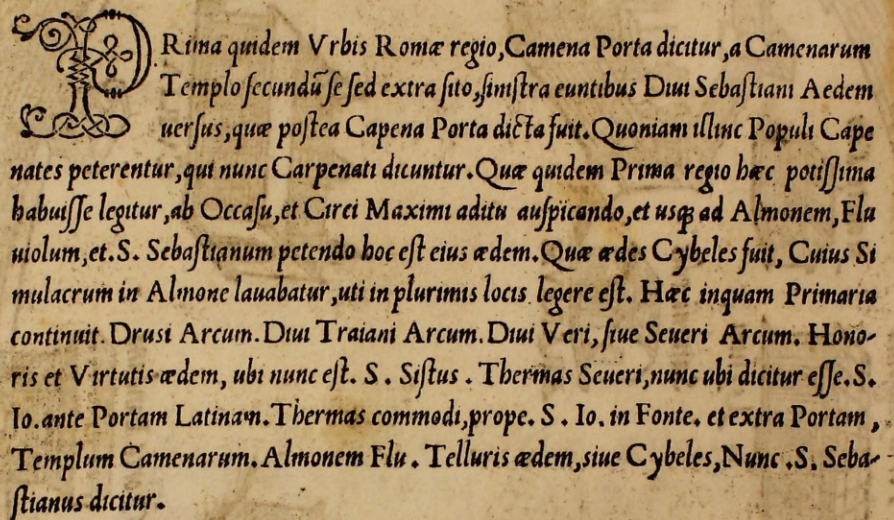 PRima quidem Vrbis Romæ regio,Camena Porta dicitur,a Camenarum
Templo ſecundũ ſe ſed extra ſito,ſiniſtra euntibus Diui Sebaſtiani Aedem
uerſus,quæ poſtea Capena Porta dicta fuit.Quoniam illinc Populi Cape
nates peterentur,qui nunc Carpenati dicuntur.Quæ quidem Prima regio hæc potiſſima
habuiſſe legitur,ab Occaſu,et Circi Maximi aditu auſpicando,et uſqꝫ ad Almonem,Flu
uiolum,et.S. Sebaſtianum petendo hoc eſt eius ædem.Quæ ædes Cybeles fuit, Cuius Si
mulacrum in Almone lauabatur,uti in plurimis locis legere eſt. Hæc inquam Primaria
continuit. Drusi Arcum.Diui Traiani Arcum.Diui Veri,ſiue Seueri Arcum. Hono-
ris et Virtutis ædem, ubi nunc eſt. S . Siſtus . Thermas Seueri,nunc ubi dicitur eſſe.S.
Io.ante Portam Latinam.Thermas commodi,prope. S . Io. in Fonte. et extra Portam ,
Templum Camenarum.Almonem Flu . Telluris ædem,siue Cybeles,Nunc .S. Seba-
ſtianus dicitur.